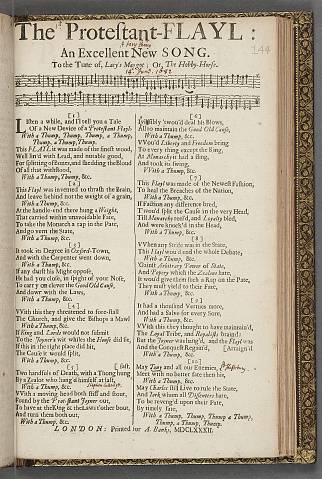 The Protestant-FLAYL:
An Excellent New SONG.
To the Tune of, Lacy's Maggot; Or, The Hobby-Horse.
14. June. 1682
144
[1]
Listen a while, and I'll tell you a Tale
Of a New Device of a Protestant Flayl
With a Thump, Thump, Thump, a Thump,
Thump, a Thump, Thump.
This FLAYL it was made of the finest wood,
Well lin'd with Lead, and notable good,
For splitting of Bones, and shedding the Blood
Of all that withstood,
With a Thump, &c.
[2]
This Flayl was invented to thrash the Brain,
And leave behind not the weight of a grain,
With a Thump, &c.
At the handle-end there hung a Weight,
That carried within unavoidable Fate,
To take the Monarch a rap in the Pate,
And govern the State,
With a Thump, &c.
[3]
It took its Degree in Oxford-Town,
And with the Carpenter went down,
With a Thump, &c.
If any durst his Might oppose,
He had you close, in spight of your Nose,
To carry on clever the Good Old Cause,
And down with the Laws,
With a Thump, &c.
[4]
With this they threatened to fore-stall
The Church, and give the Bishops a Mawl
With a Thump, &c.
If King and Lords would not submit
To the Joyner's wit whiles the House did sit,
If this in the right place did hit,
The Cause it would split,
With a Thump, &c.
[5]
Two handfuls of Death, with a Thong hung fast,
By a Zealot who hang'd himself at last,
With a Thump, &c.
With a moving head both stiff and stout,
Found by the Protestant Joyner out,
To have at the King & the Laws t'other bout,
And turn them both out,
With a Thump, &c.
[6]
Invisibly 'twou'd deal his Blows,
All to maintain the Good Old Cause,
With a Thump, &c.
'TWou'd Liberty and Freedom bring
To every thing except the King,
At Monarchy it had a fling,
And took its swing,
With a Thump, &c.
[7]
This Flayl was made of the Newest Fashion,
To heal the Breaches of the Nation,
With a Thump, &c.
If Faction any difference bred,
T'would split the Cause in the very Head,
Till Monarchy reel'd, and Loyalty bled,
And were knock'd in the Head,
With a Thump, &c.
[8]
When any Strife was in the State,
This Flayl wou'd end the whole Debate,
With a Thump, &c.
'Gainst Arbitrary Power of State,
And Popery which the Zealous hate,
It would give them such a Rap on the Pate,
They must yield to their Fate,
With a Thump, &c.
[9]
It had a thousand Vertues more,
And had a Salve for every Sore,
With a Thump, &c.
With this they thought to have maintain'd,
The Loyal Tribe, and Royalists brain'd:
But the Joyner was hang'd, and the Flayl was [Arraign'd
And the Conquest Regain'd,
With a Thump, &c.
[10]
May Tony and all our Enemies,
Meet with no better fate then his,
With a Thump, &c.
May Charles still Live to rule the State,
And York, whom all Dissenters hate,
To be reveng'd upon their Pate,
By timely fate,
With a Thump, Thump, Thump a Thump,
Thump, a Thump, Thump.
LONDON: Printed for A. Banks, MDCLXXXII.